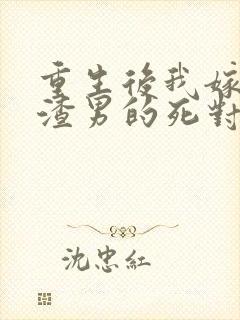 重生後我嫁
渣男的死對
沈忠紅